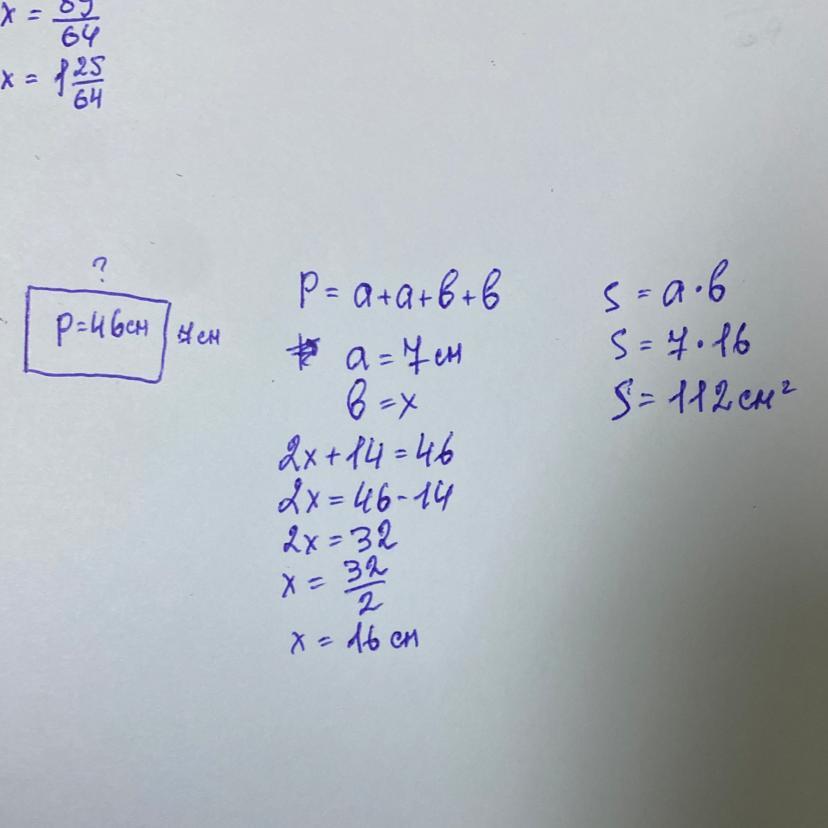 x = 89/64
x = 1 25/64
?
P=46см
7см
P = a+a+в+в
a = 7см
в = x
2x+14=46
2x=46-14
2x=32
x = 32/2
x = 16 см
S = a·в
S = 7·16
S = 112см²